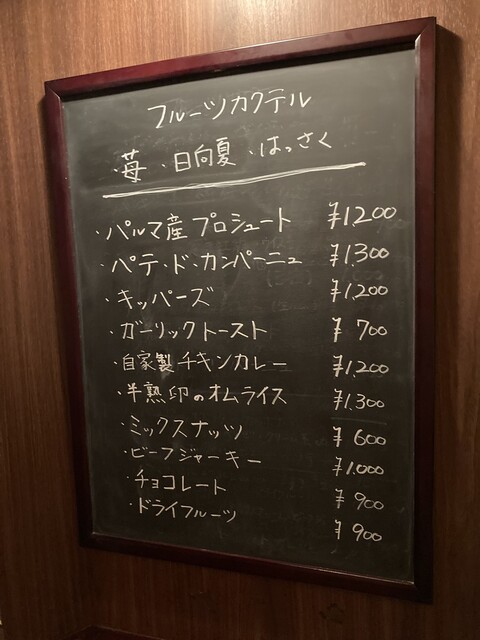 フルーツカクテル
・苺 ・日向夏 ・はっさく
・パルマ産プロシュート ¥1,200
・パテ・ド・カンパーニュ ¥1,300
・キッパーズ ¥1,200
・ガーリックトースト ¥700
・自家製チキンカレー ¥1,200
・半熟卵のオムライス ¥1,300
・ミックスナッツ ¥600
・ビーフジャーキー ¥1,000
・チョコレート ¥900
・ドライフルーツ ¥900